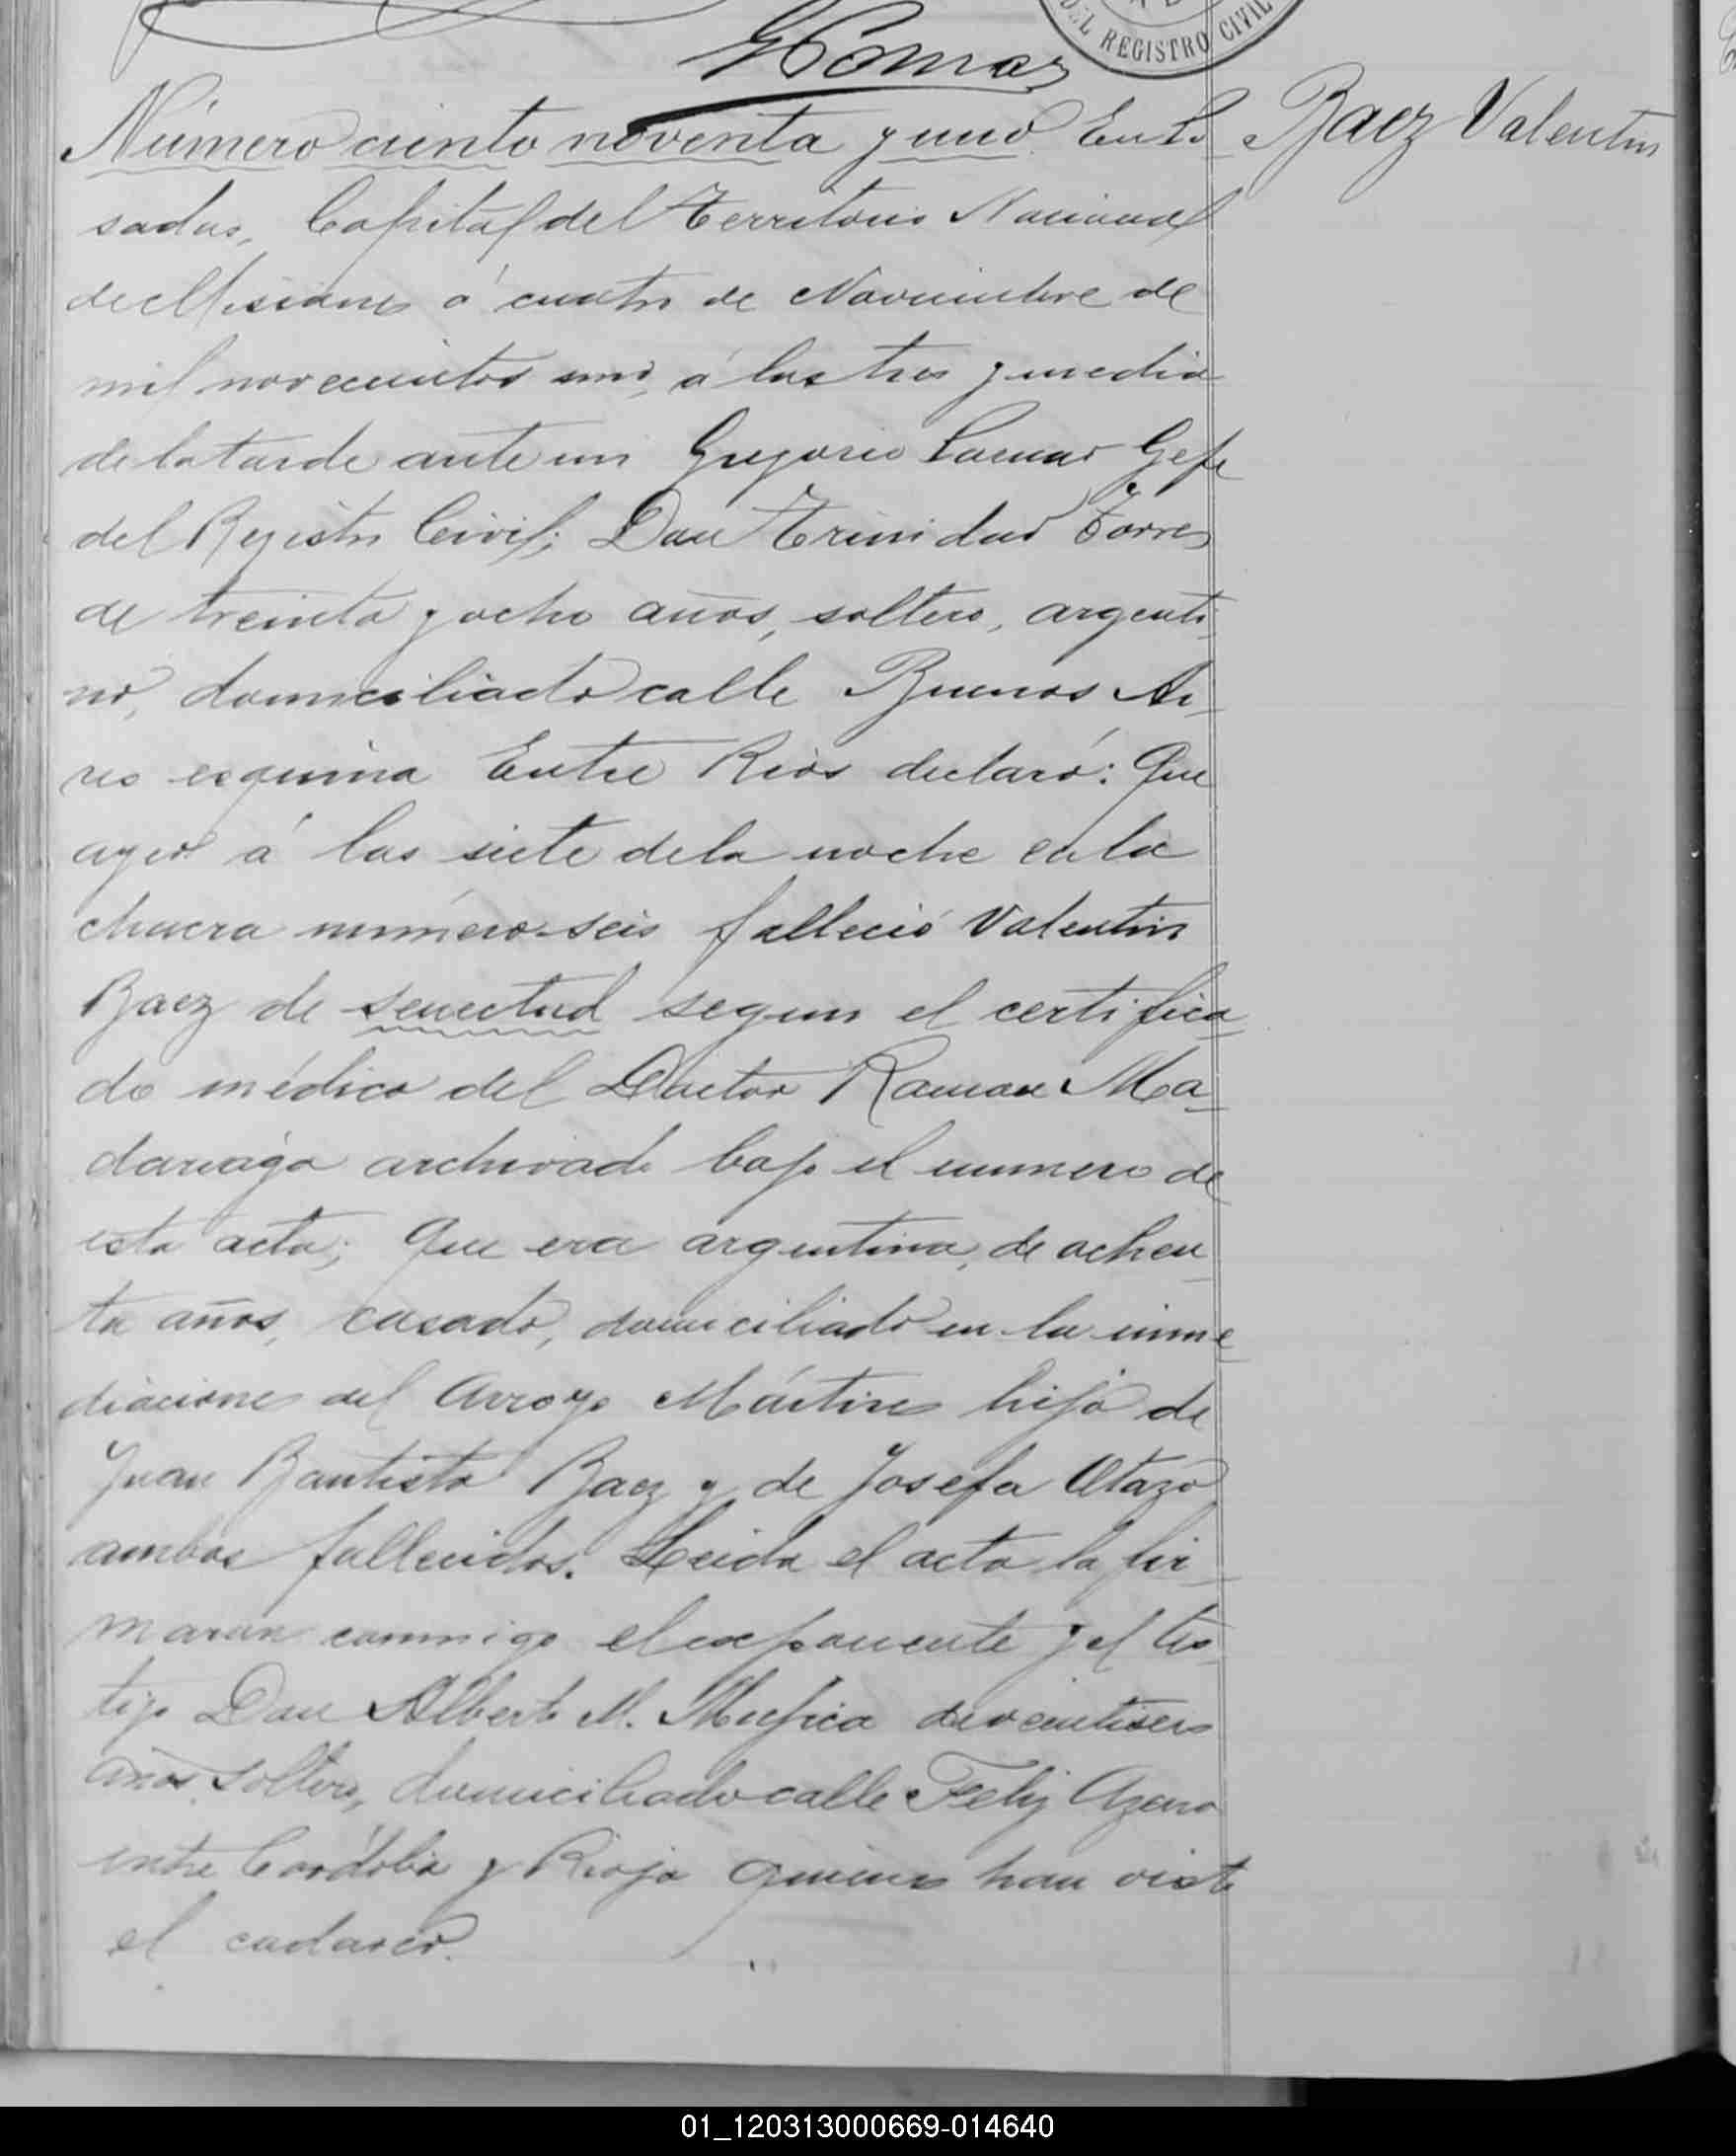 DEL REGISTRO CIVIL
Baez Valentin
Número ciento noventa y uno. En Po
sadas, Capital del Territorio Nacional
de Misiones á cuatro de Noviembre de
mil novecientos uno, á las tres y media
de la tarde ante mi Gregorio Gefe
del Registro Civil; Don Trinidad Torres
de treinta y ocho años, soltero, argenti-
no, domiciliado calle Buenos Ai-
res esquina Entre Rios declaró: Que
ayer á las siete de la noche en la
chacra número seis falleció Valentin
Baez de senectud segun el certifica-
do médico del Doctor Ramon Ma-
dariaga archivado bajo el numero de
esta acta; Que era argentino, de ochen-
ta años, casado, domiciliado en la inme-
diaciones del Arroyo Mártires hijo de
Juan Bautista Baez y de Josefa Otazo
ambos fallecidos. Leida el acta la fir-
maron conmigo el exponente y el tes-
tigo Don Alberto M. Mujica de veintiseis
años, soltero, domiciliado calle Feliz Azara
entre Cordoba y Rioja quienes han visto
el cadaver.
01_120313000669-014640